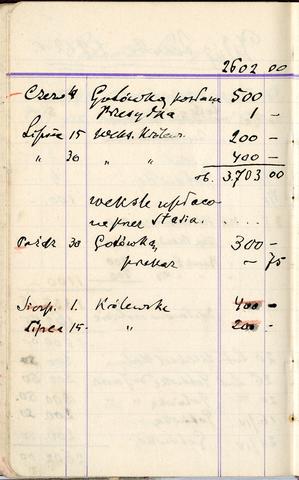 2602 00
Czerw 4 Gotówką posłano 500 -
Przesyłka 1 -
Lipiec 15 Weks. Królew. 200 -
" 30 " " 400 -
rb. 3.703 00
weksle wpłaco
ne przez Stasia. .... -
Paźdz 30 Gotówką 300 -
przekaz - 75
Sierp. 1. Królewska 400 -
Lipiec 15- " 200 -